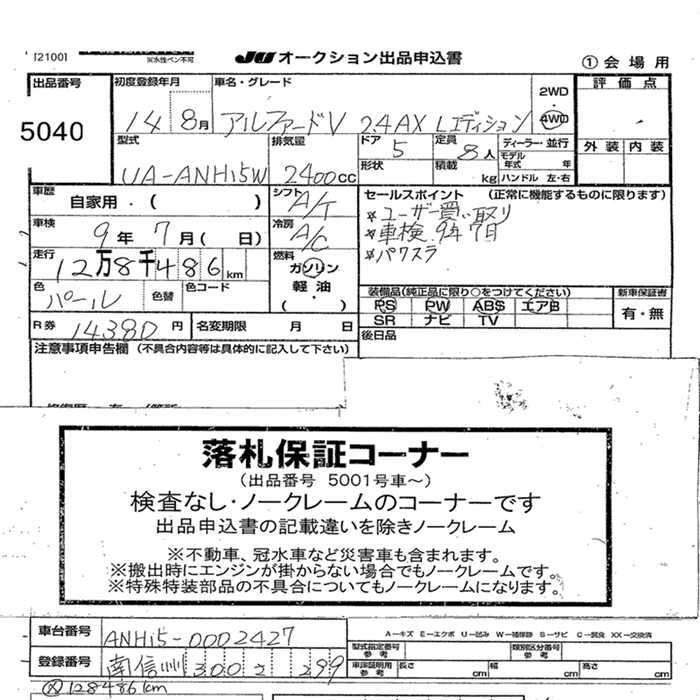 [2100] ※水性ペン不可 JU オークション出品申込書 ①会場用
出品番号 初度登録年月 車名・グレード 2WD 評価点
5040 14 8月 アルファードV 2.4AX Lエディション ・4WD
型式 排気量 ドア 定員 ディーラー・並行 外装 内装
UA-ANH15W 2400cc 5 8人 モデル年式 年
形状 積載 kg ハンドル 左・右
車歴 自家用・( ) シフト A/T セールスポイント (正常に機能するものに限ります)
※ユーザー買い取り
車検 9年7月( 日) 冷房 A/C ※車検 9年7日
走行 12万8千486km 燃料 ガソリン ※パワスラ
軽油
・( )
色 パール 色替 色コード 装備品(純正品に限り○をつけてください) 新車保証書
PS PW ABS エアB 有・無
R券 14380円 名変期限 月 日 SR ナビ TV
注意事項申告欄 (不具合内容等は具体的に記入して下さい) 後日品
落札保証コーナー
(出品番号 5001号車～)
検査なし・ノークレームのコーナーです
出品申込書の記載違いを除きノークレーム
※不動車、冠水車など災害車も含まれます。
※搬出時にエンジンが掛からない場合でもノークレームです。
※特殊特装部品の不具合についてもノークレームになります。
車台番号 ANH15-0002427 A－キズ E－エクボ U－凹み W－補修跡 S－サビ C－腐食 XX－交換済
型式指定番号 参考 類別区分番号 参考
登録番号 南信州 300 さ 299 車庫証明用 参考 長さ cm 幅 cm 高さ cm
128486km